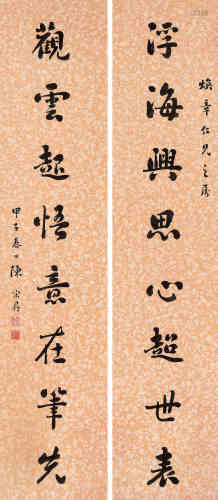 浮海興思心超世表
煥章仁兄之屬
觀雲起悟意在筆先
甲子春日陳